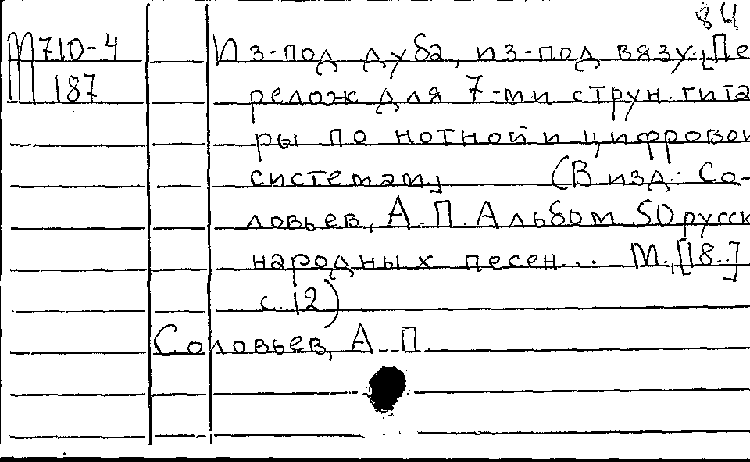 84
М710-4 Из-под дуба, из-под вязу. [Пе
Ш 187 релож для 7-ми струн. гита
ры по нотной и цифровой
системам] (В изд.: Со-
ловьев, А. П. Альбом 50 русск
народных песен... М., [18..]
с. 12)
Соловьев, А. П.